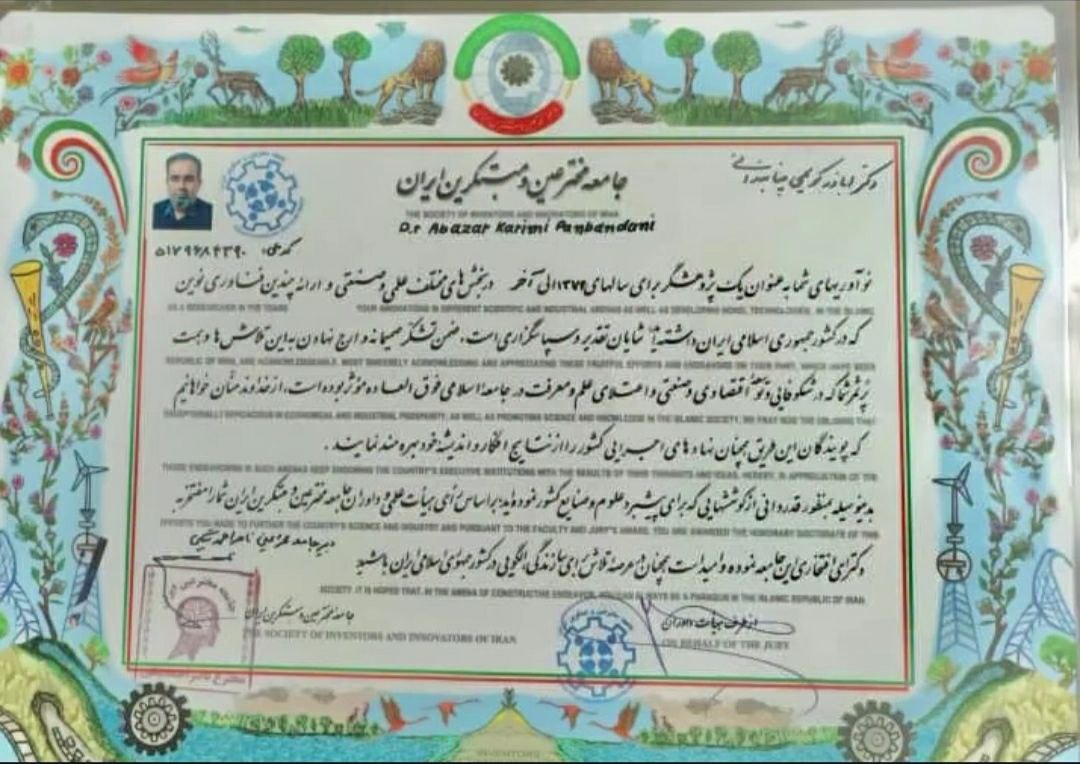 دکتر اباذر کریمی پنابندانی
جامعه مخترعین و مبتکرین ایران
THE SOCIETY OF INVENTORS AND INNOVATORS OF IRAN
D.r Abazar Karimi Panbandani
کد ملی: ۵۱۷۹۶۸۴۳۹۰
نوآوریهای شما به عنوان یک پژوهشگر برای سالهای ۱۳۷۴ الی آخر در بخش های مختلف علمی و صنعتی و ارائه چندین فناوری نوین
AS A RESEARCHER IN THE YEARS YOUR INNOVATIONS IN DIFFERENT SCIENTIFIC AND INDUSTRIAL ARENAS AS WELL AS DEVELOPING NOVEL TECHNOLOGIES, IN THE ISLAMIC
که در کشور جمهوری اسلامی ایران داشته اید شایان تقدیر و سپاسگزاری است، ضمن تشکر صمیمانه و ارج نهادن به این تلاش ها و همت
REPUBLIC OF IRAN, ARE ACKNOWLEDGEABLE. MOST SINCERELY ACKNOWLEDGING AND APPRECIATING THESE FRUITFUL EFFORTS AND ENDEAVORS ON YOUR PART, WHICH HAVE BEEN
پرثمر شما که در شکوفایی و توسعه اقتصادی و صنعتی و اعتلای علم و معرفت در جامعه اسلامی فوق العاده مؤثر بوده است، از خداوند منان خواهانیم
EXCEPTIONALLY EFFICACIOUS IN ECONOMICAL AND INDUSTRIAL PROSPERITY, AS WELL AS PROMOTING SCIENCE AND KNOWLEDGE IN THE ISLAMIC SOCIETY, WE PRAY GOD THE
که پویندگان این طریق همچنان نهادهای اجرایی کشور را از نتایج افکار و اندیشه خود بهره مند نمایند.
THOSE ENDEAVORING IN SUCH ARENAS KEEP ENDOWING THE COUNTRY'S EXECUTIVE INSTITUTIONS WITH THE RESULTS OF THEIR THOUGHTS AND IDEAS. HEREBY, IN APPRECIATION OF THE
بدینوسیله بمنظور قدردانی از کوششهایی که برای پیشبرد علوم و صنایع کشور نموده اید بر اساس رأی هیأت علمی و داوران جامعه مخترعین و مبتکرین ایران شما را مفتخر به
EFFORTS YOU MADE TO FURTHER THE COUNTRY'S SCIENCE AND INDUSTRY AND PURSUANT TO THE FACULTY AND JURY'S AWARD, YOU ARE AWARDED THE HONORARY DOCTORATE OF THIS
دکترای افتخاری این جامعه نموده و امید است همچنان در عرصه تلاش برای سازندگی، الگویی در کشور جمهوری اسلامی ایران باشید
SOCIETY. IT IS HOPED THAT, IN THE ARENA OF CONSTRUCTIVE ENDEAVOR, YOU CAN ALWAYS BE A PARAGON IN THE ISLAMIC REPUBLIC OF IRAN
دبیر جامعه مخترعین
جامعه مخترعین و مبتکرین ایران
THE SOCIETY OF INVENTORS AND INNOVATORS OF IRAN
از طرف هیأت داوران
ON BEHALF OF THE JURY